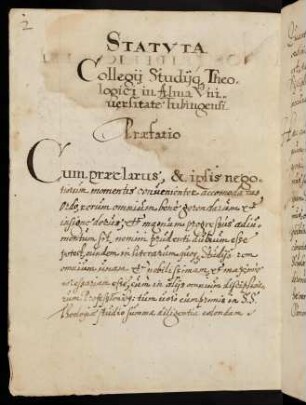 2
STATVTA
Collegij Studijq. Theo-
logici in Alma Vni-
uersitate Tubingensi.
Præfatio
Cum præclarus, & ipsis nego-
tiorum momentis conuenienter accomodatus
Ordo, rerum omnium bene gerendarum et
insigne decus, et magnum progressus adiu-
mentum sit, nemini prudenti dubium esse
potest, eundem in literarum quoq. studijs rem
omnium et nobilissimam, et maxime
necessariam esse, cum in alijs omnium disciplina-
rum Professionib. tum uero cumprimis in S.S.
Theologiæ studio summa diligentia colendam